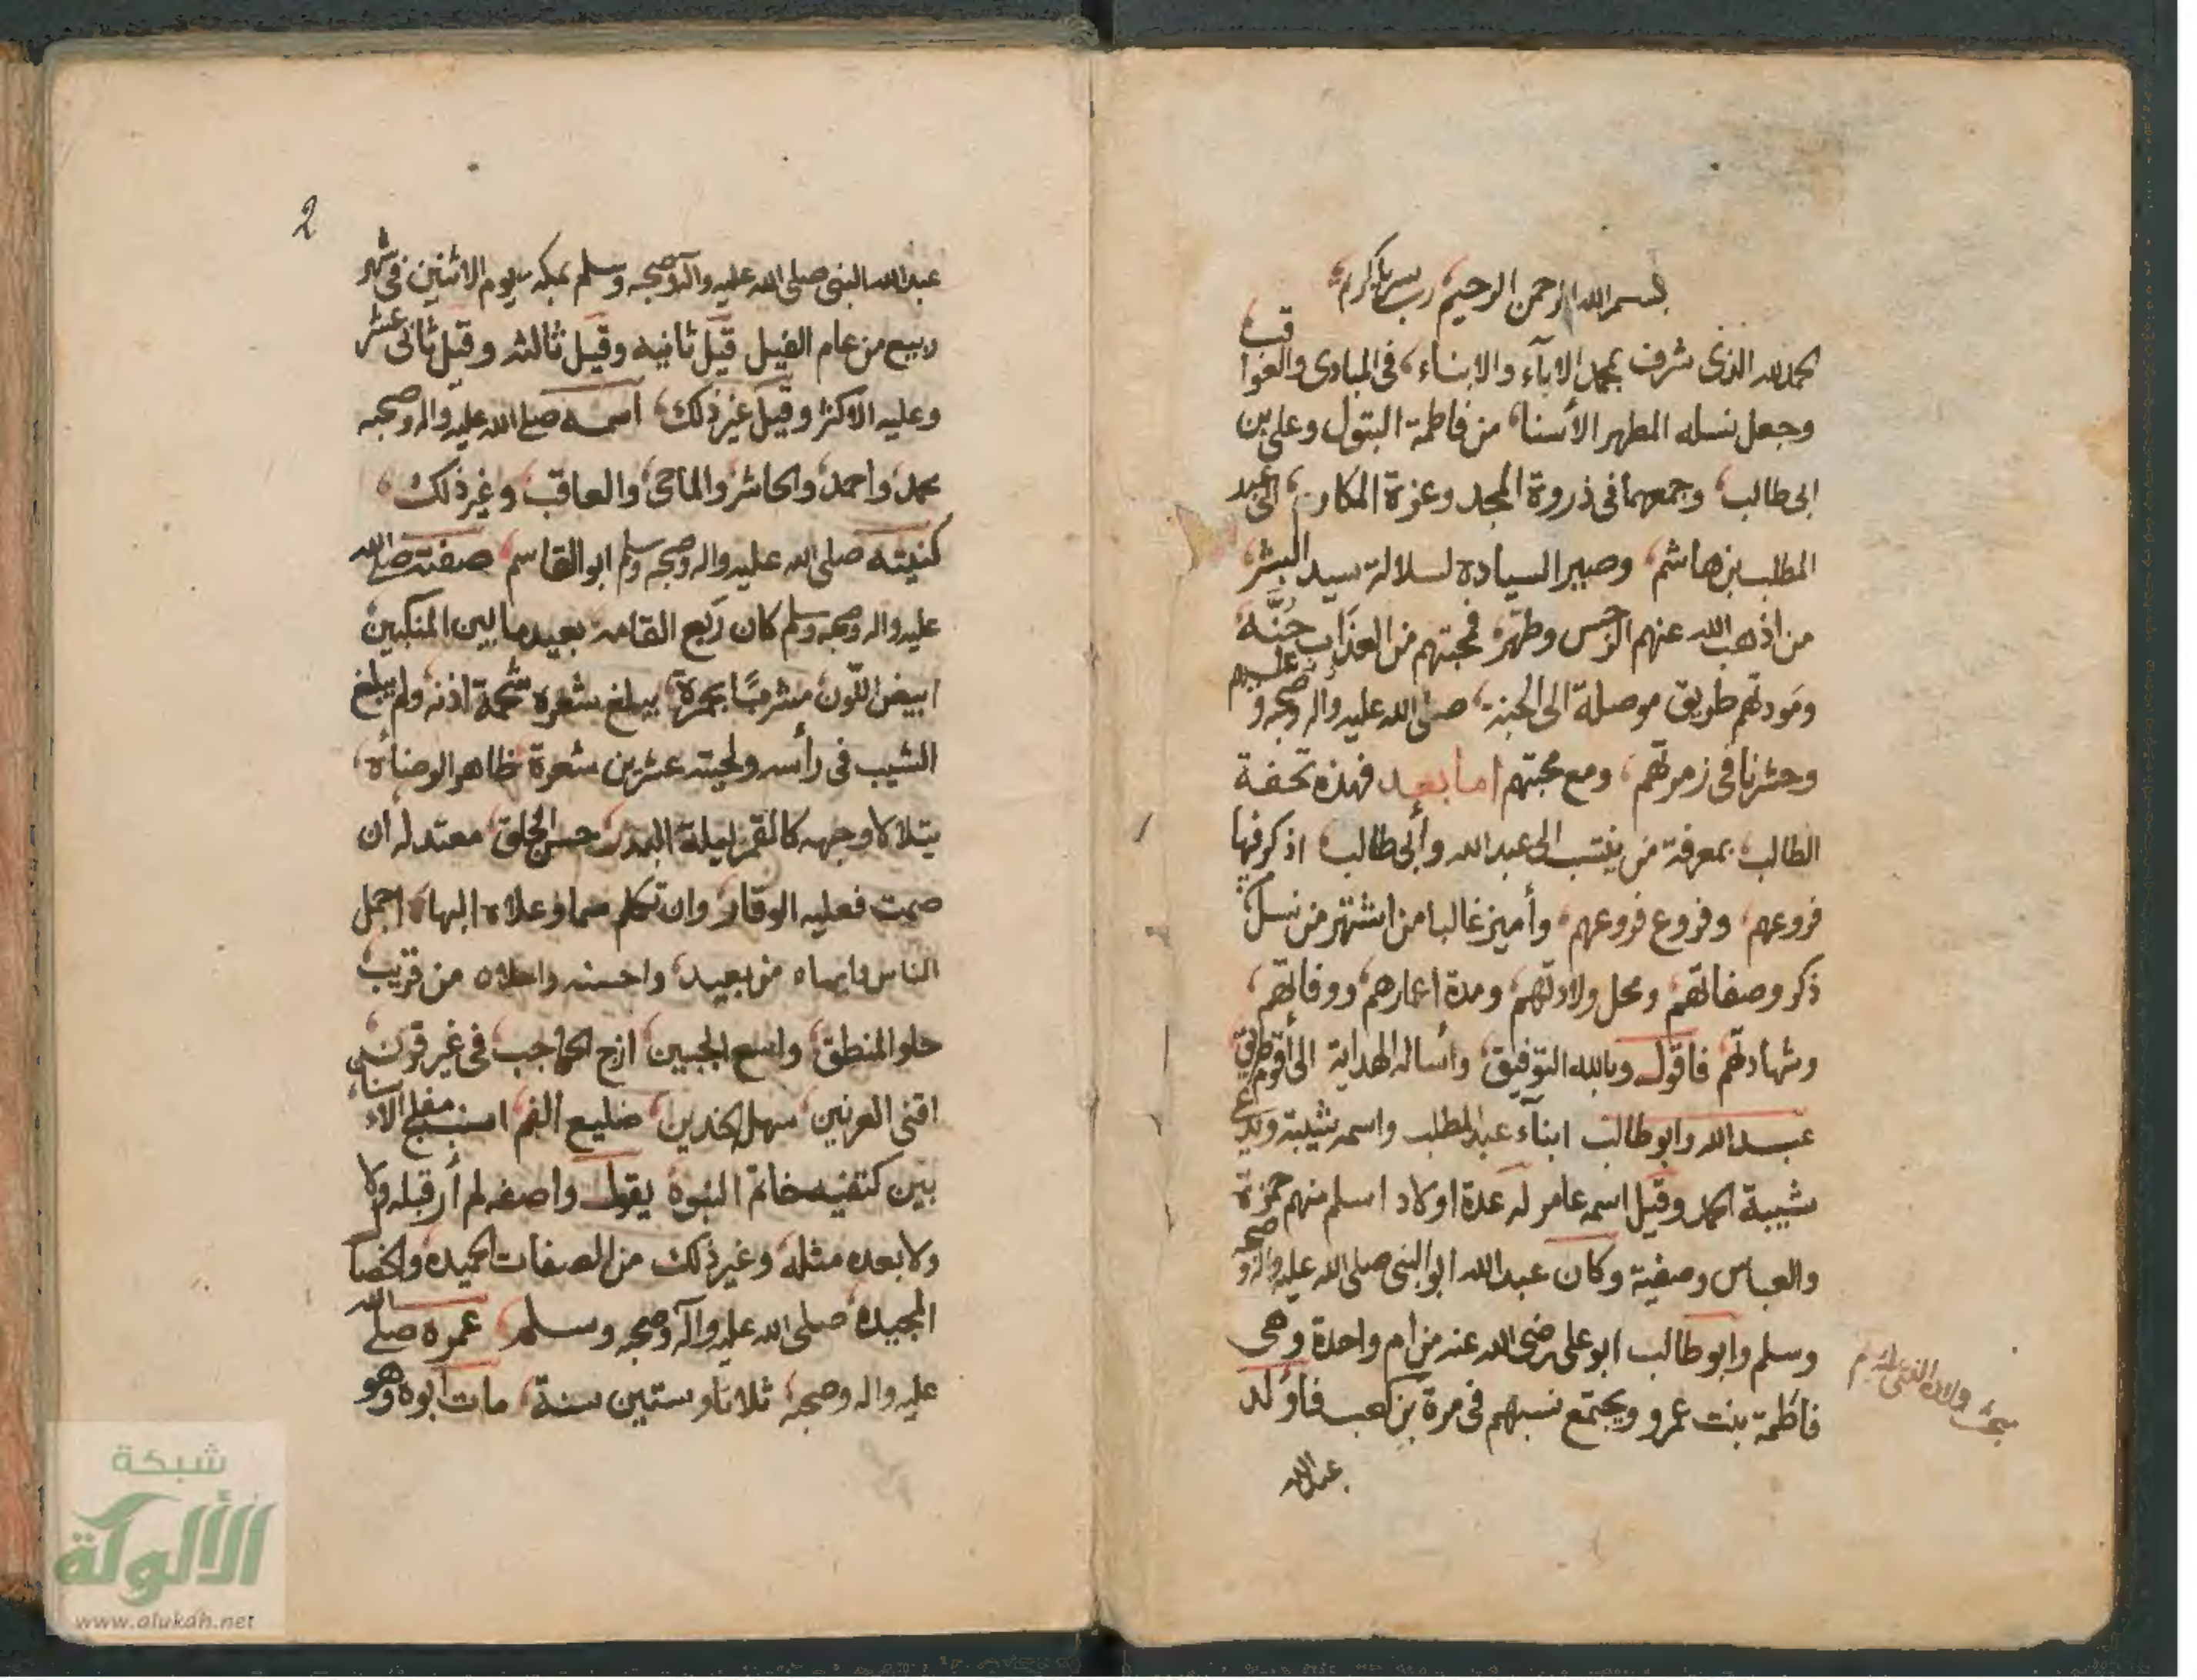 بسم الله الرحمن الرحيم رب يسر يا كريم
الحمد لله الذي شرف بمحمد الاباء والابناء في المبادي والعواقب
وجعل نسله المطهر الأسنا من فاطمة البتول وعلي بن
ابي طالب وجمعهما في ذروة المجد وعزة المكارم الى عبد
المطلب بن هاشم وصير السيادة لسلالة سيد البشر
من اذهب الله عنهم الرجس وطهر فمحبتهم من العذاب جُنَّة
ومودتهم طريق موصلة الى الجنة صلى الله عليه واله وصحبه وعليهم
وحشرنا في زمرتهم ومع محبتهم اما بعد فهذه تحفة
الطالب بمعرفة من ينتسب الى عبد الله وأبي طالب اذكر فيها
فروعهم وفروع فروعهم وأميز غالبا من اشتهر من نسل
ذكر وصفاتهم ومحل ولادتهم ومدة اعمارهم ووفاتهم
وشهادتهم فاقول وبالله التوفيق وأساله الهداية الى أقوم طريق
عبد الله وابو طالب ابناء عبد المطلب واسمه شيبة ويدعى
شيبة الحمد وقيل اسمه عامر له عدة اولاد اسلم منهم حمزة
والعباس وصفية وكان عبد الله ابو النبي صلى الله عليه واله وصحبه
وسلم وابو طالب ابو علي رضي الله عنه من أم واحدة وهي
فاطمة بنت عمرو ويجتمع نسبهم في مرة بن كعب فأولد
عبد الله
مبحث ولادة النبي عليه
2
عبد الله النبي صلى الله عليه واله وصحبه وسلم بمكه يوم الاثنين في شهر
ربيع من عام الفيل قيل ثانيه وقيل ثالثه وقيل ثاني عشر
وعليه الاكثر وقيل غير ذلك اسمه صلى الله عليه واله وصحبه
محمد واحمد والحاشر والماحي والعاقب وغير ذلك
كنيته صلى الله عليه واله وصحبه وسلم ابو القاسم صفته صلى الله
عليه واله وصحبه وسلم كان ربع القامة بعيد ما بين المنكبين
ابيض اللون مشربًا بحمرة يبلغ شعره شحمة اذنه ولم يبلغ
الشيب في رأسه ولحيته عشرين شعرة ظاهر الوضاأة
يتلالا وجهه كالقمر ليلة البدر حسن الخلق معتدله ان
صمت فعليه الوقار وان تكلم سما وعلاه البهاء اجمل
الناس وابهاه من بعيد واحسنه واحلاه من قريب
حلو المنطق واسع الجبين ازج الحواجب في غير قرن
اقنى العرنين سهل الخدين ضليع الفم اشنب مفلج الاسنان
بين كتفيه خاتم النبوة يقول واصفه لم أر قبله ولا
ولا بعده مثله وغير ذلك من الصفات الحميده والخصا
المجيده صلى الله عليه وآله وصحبه وسلم عمره صلى الله
عليه واله وصحبه ثلاثا وستين سنة مات ابوه وهو
شبكة
الألوكة
www.alukah.net